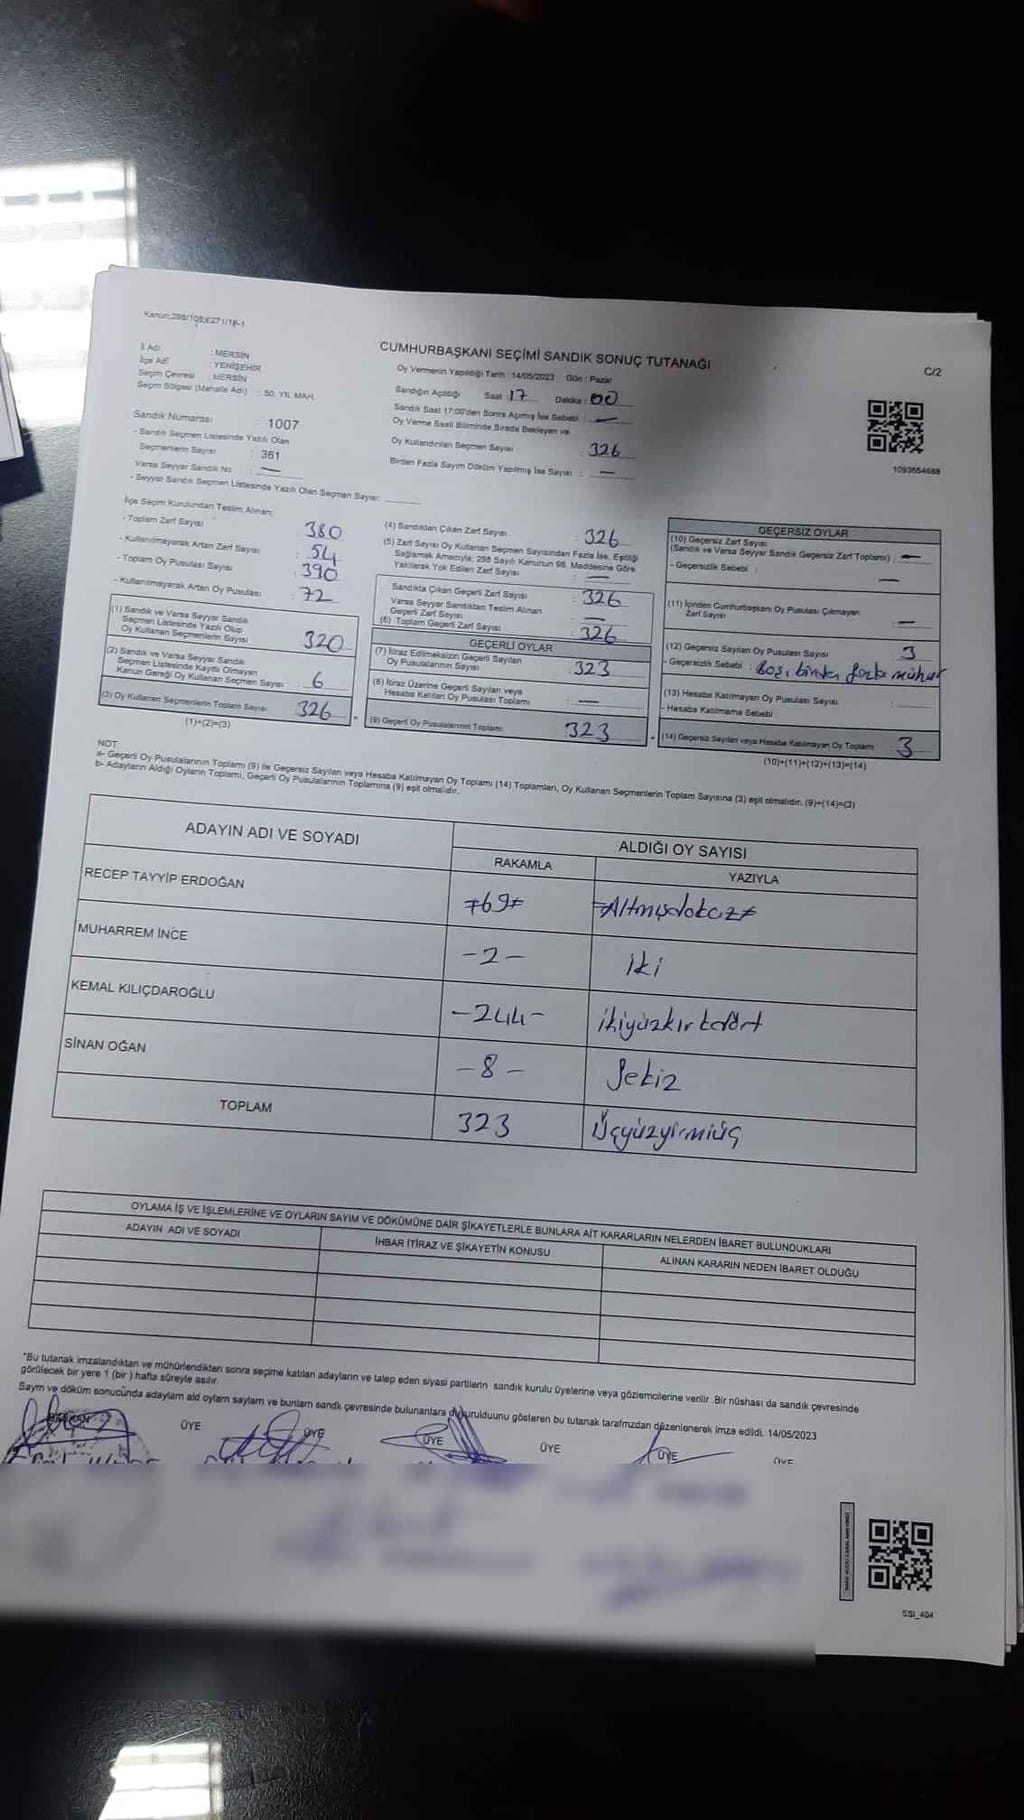 Kanun:298/105;6271/18-1
CUMHURBAŞKANI SEÇİMİ SANDIK SONUÇ TUTANAĞI
C/2
İl Adı : MERSİN
İlçe Adı : YENİŞEHİR
Seçim Çevresi : MERSİN
Seçim Bölgesi (Mahalle Adı) : 50. YIL MAH.
Oy Vermenin Yapıldığı Tarih : 14/05/2023 Gün : Pazar
Sandığın Açıldığı Saat : 17 Dakika : 00
Sandık Saat 17:00'den Sonra Açılmış İse Sebebi : —
Oy Verme Saati Bitiminde Sırada Bekleyen ve
Oy Kullandırılan Seçmen Sayısı : 326
Birden Fazla Sayım Döküm Yapılmış İse Sayısı : —
1093654668
Sandık Numarası : 1007
- Sandık Seçmen Listesinde Yazılı Olan
Seçmenlerin Sayısı : 361
Varsa Seyyar Sandık No : —
- Seyyar Sandık Seçmen Listesinde Yazılı Olan Seçmen Sayısı:
İlçe Seçim Kurulundan Teslim Alınan;
- Toplam Zarf Sayısı : 380
- Kullanılmayarak Artan Zarf Sayısı : 54
- Toplam Oy Pusulası Sayısı : 390
- Kullanılmayarak Artan Oy Pusulası : 72
(1) Sandık ve Varsa Seyyar Sandık
Seçmen Listesinde Yazılı Olup
Oy Kullanan Seçmenlerin Sayısı : 320
(2) Sandık ve Varsa Seyyar Sandık
Seçmen Listesinde Kayıtlı Olmayan
Kanun Gereği Oy Kullanan Seçmen Sayısı : 6
(3) Oy Kullanan Seçmenlerin Toplam Sayısı : 326
(1)+(2)=(3)
(4) Sandıktan Çıkan Zarf Sayısı : 326
(5) Zarf Sayısı Oy Kullanan Seçmen Sayısından Fazla İse, Eşitliği
Sağlamak Amacıyla; 298 Sayılı Kanunun 98. Maddesine Göre
Yakılarak Yok Edilen Zarf Sayısı : —
Sandıkta Çıkan Geçerli Zarf Sayısı : 326
Varsa Seyyar Sandıktan Teslim Alınan
Geçerli Zarf Sayısı : —
(6) Toplam Geçerli Zarf Sayısı : 326
GEÇERLİ OYLAR
(7) İtiraz Edilmeksizin Geçerli Sayılan
Oy Pusulalarının Sayısı : 323
(8) İtiraz Üzerine Geçerli Sayılan veya
Hesaba Katılan Oy Pusulası Toplamı : —
(9) Geçerli Oy Pusulalarının Toplamı : 323
GEÇERSİZ OYLAR
(10) Geçersiz Zarf Sayısı
(Sandık ve Varsa Seyyar Sandık Geçersiz Zarf Toplamı) : —
- Geçersizlik Sebebi : —
(11) İçinden Cumhurbaşkanı Oy Pusulası Çıkmayan
Zarf Sayısı : —
(12) Geçersiz Sayılan Oy Pusulası Sayısı : 3
- Geçersizlik Sebebi : Boş, birden fazla mühür
(13) Hesaba Katılmayan Oy Pusulası Sayısı :
- Hesaba Katılmama Sebebi :
(14) Geçersiz Sayılan veya Hesaba Katılmayan Oy Toplamı : 3
(10)+(11)+(12)+(13)=(14)
NOT:
a- Geçerli Oy Pusulalarının Toplamı (9) ile Geçersiz Sayılan veya Hesaba Katılmayan Oy Toplamı (14) Toplamları, Oy Kullanan Seçmenlerin Toplam Sayısına (3) eşit olmalıdır. (9)+(14)=(3)
b- Adayların Aldığı Oyların Toplamı, Geçerli Oy Pusulalarının Toplamına (9) eşit olmalıdır.
ADAYIN ADI VE SOYADI
ALDIĞI OY SAYISI
RAKAMLA YAZIYLA
RECEP TAYYİP ERDOĞAN 69 Altmışdokuz
MUHARREM İNCE -2- iki
KEMAL KILIÇDAROĞLU -244- ikiyüzkırkdört
SİNAN OĞAN -8- Sekiz
TOPLAM 323 Üçyüzyirmiüç
OYLAMA İŞ VE İŞLEMLERİNE VE OYLARIN SAYIM VE DÖKÜMÜNE DAİR ŞİKAYETLERLE BUNLARA AİT KARARLARIN NELERDEN İBARET BULUNDUKLARI
ADAYIN ADI VE SOYADI İHBAR İTİRAZ VE ŞİKAYETİN KONUSU ALINAN KARARIN NEDEN İBARET OLDUĞU
*Bu tutanak imzalandıktan ve mühürlendikten sonra seçime katılan adayların ve talep eden siyasi partilerin sandık kurulu üyelerine veya gözlemcilerine verilir. Bir nüshası da sandık çevresinde
görülecek bir yere 1 (bir) hafta süreyle asılır.
Sayım ve döküm sonucunda adayların aldığı oyların sayısını ve bunların sandık çevresinde bulunanlara duyurulduğunu gösteren bu tutanak tarafımızdan düzenlenerek imza edildi. 14/05/2023
BAŞKAN ÜYE ÜYE ÜYE ÜYE ÜYE ÜYE
SSI_404